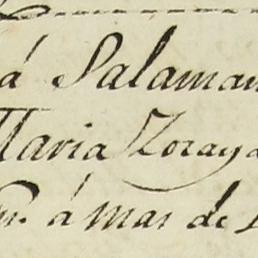 á Salaman
Maria Zoraya
á mas de